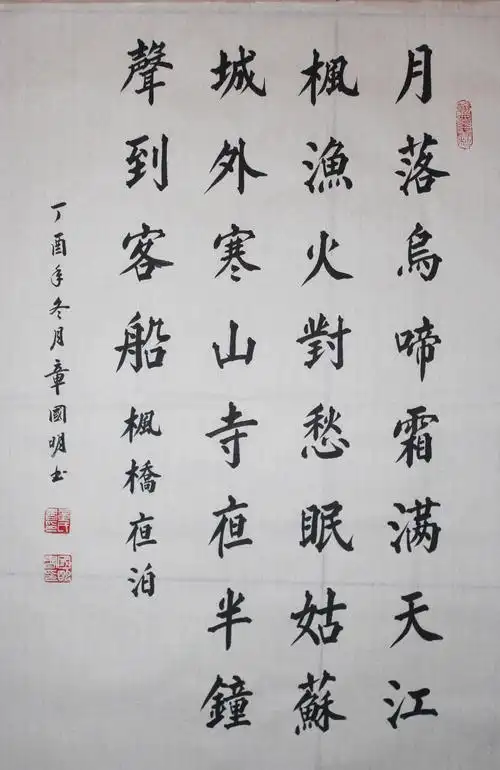 月落烏啼霜满天江
楓漁火對愁眠姑蘇
城外寒山寺夜半鐘
聲到客船楓橋夜泊
丁酉年冬月章國明书